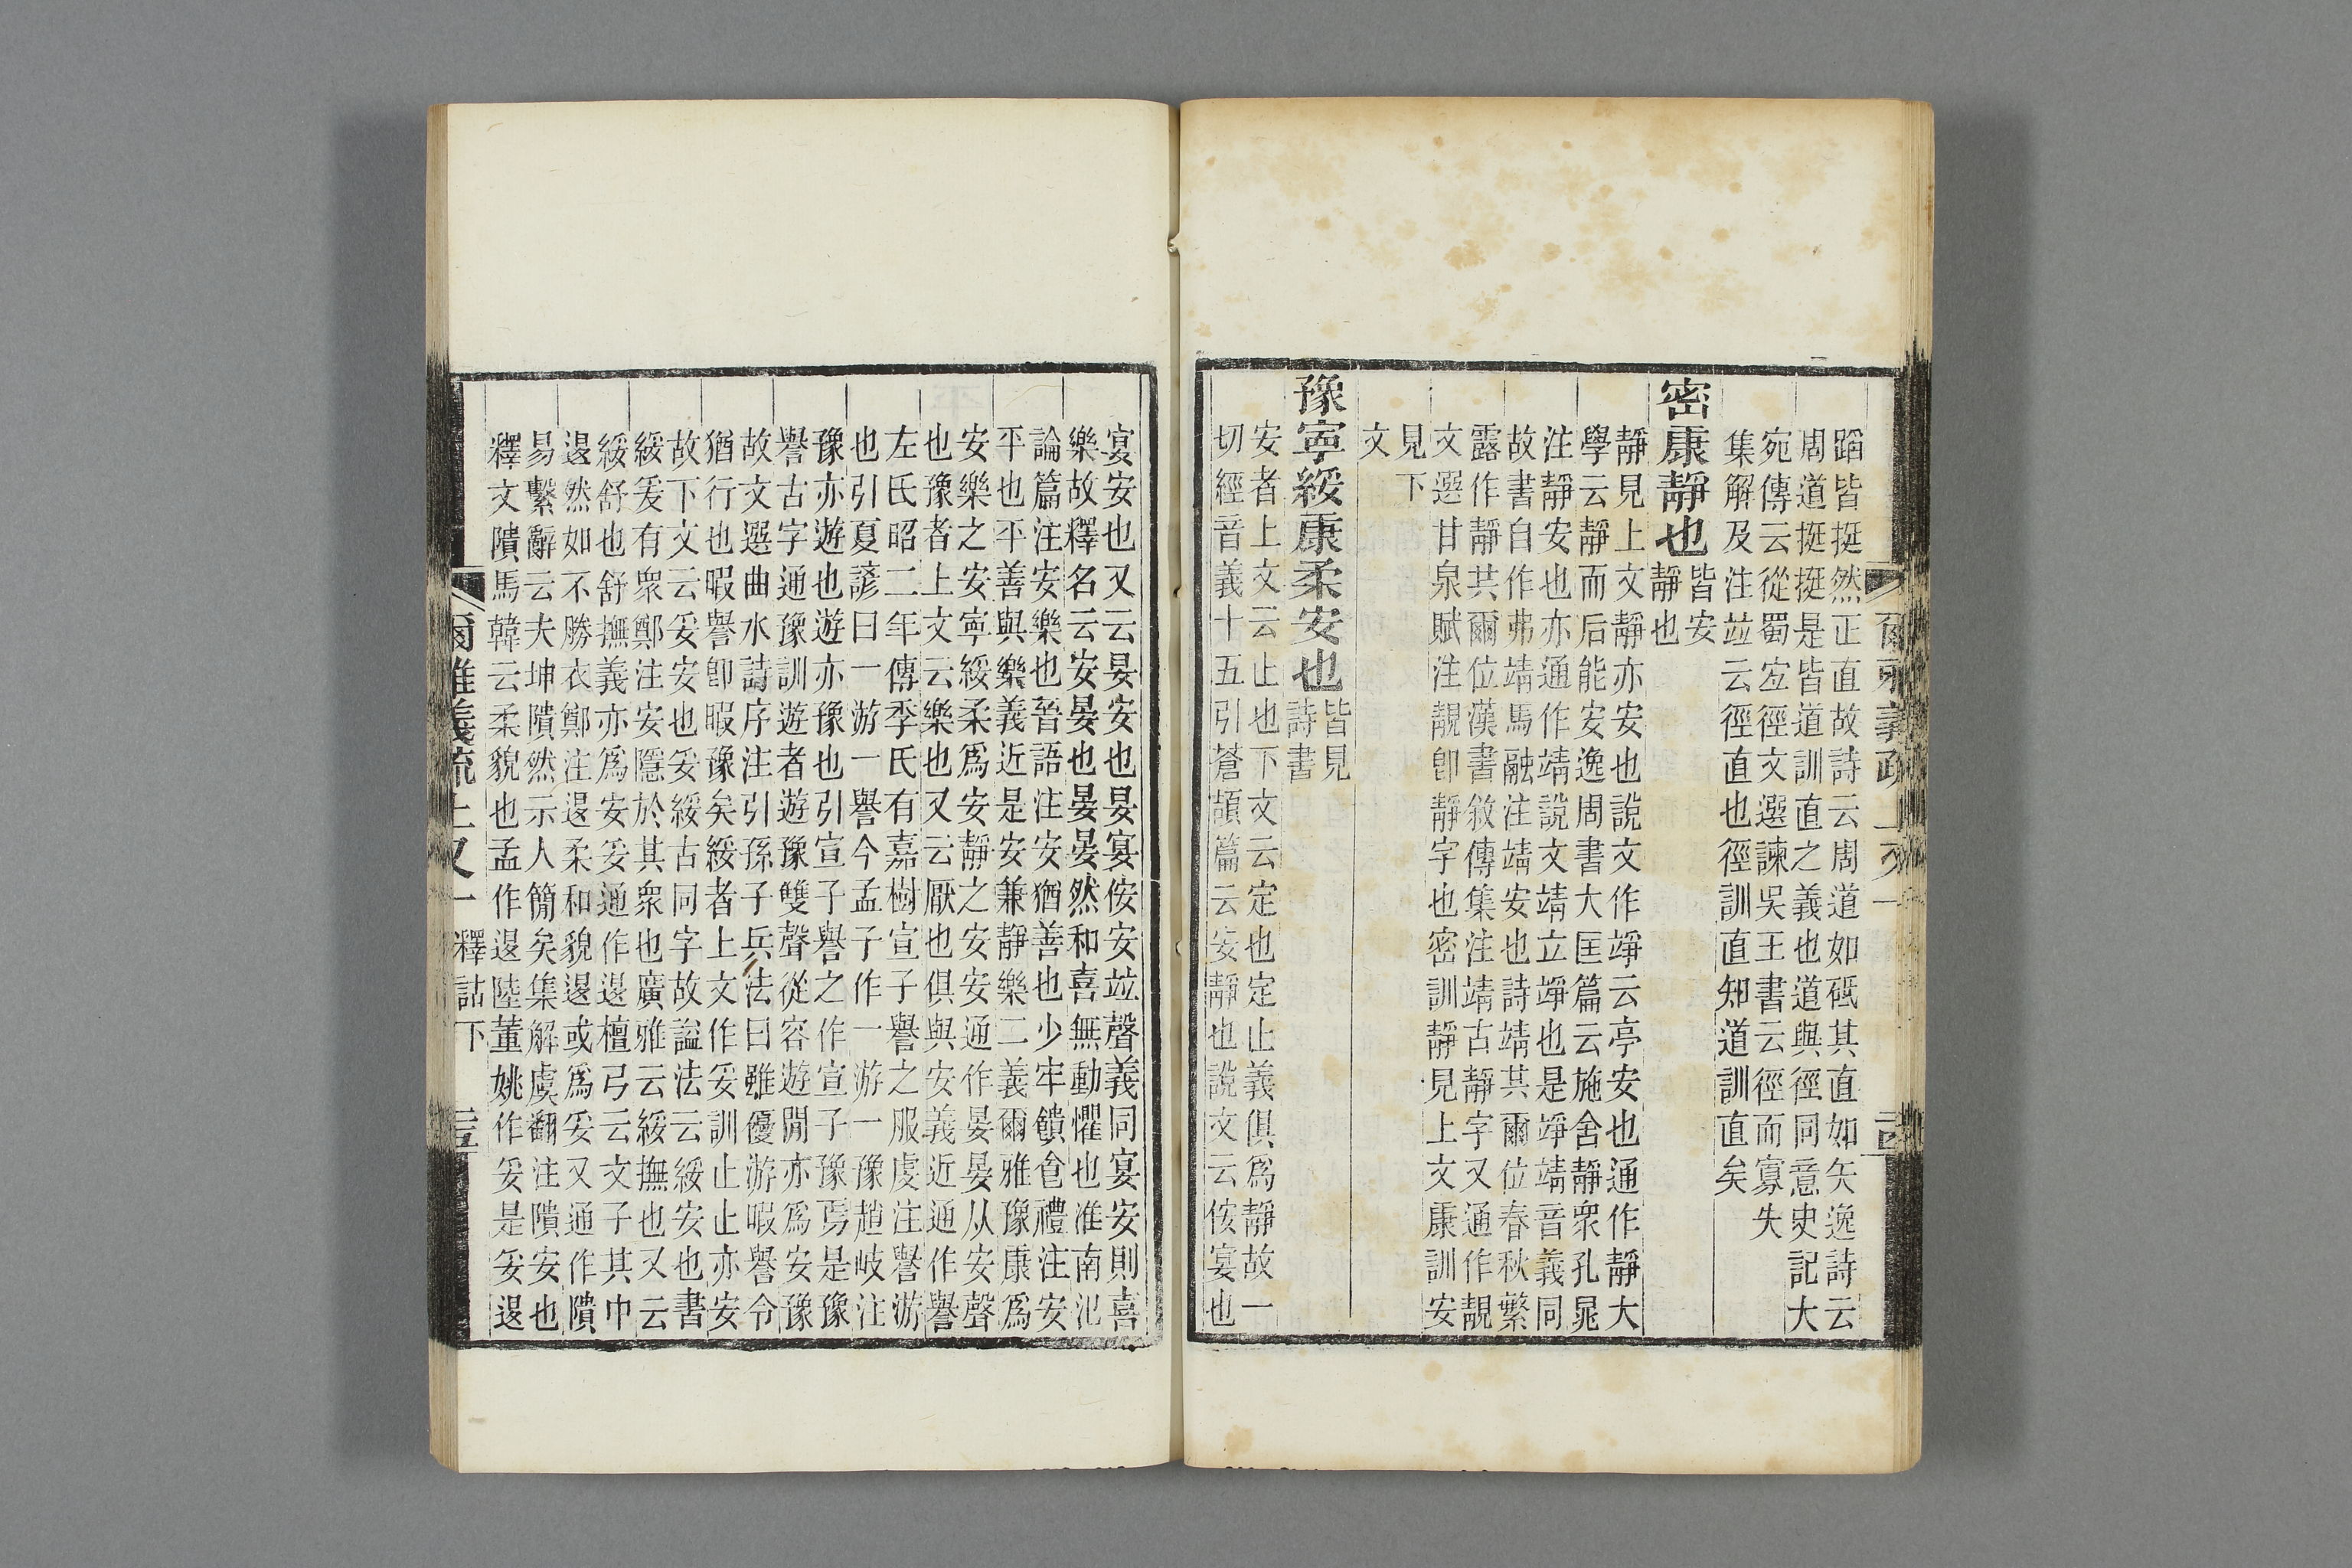 爾雅義疏 上又一
蹈皆挺然正直故詩云周道如砥其直如矢逸詩云
周道挺挺是皆道訓直之義也道與徑同意史記大
宛傳云從蜀宜徑文選諫吳王書云徑而寡失
集解及注竝云徑直也徑訓直知道訓直矣
密康靜也皆安
靜也
靜見上文靜亦安也說文作竫云亭安也通作靜大
學云靜而后能安逸周書大匡篇云施舍靜眾孔晁
注靜安也亦通作靖說文靖立竫也是竫靖音義同
故書自作弗靖馬融注靖安也詩靖共爾位春秋繁
露作靜共爾位漢書敘傳集注靖古靜字又通作靚
文選甘泉賦注靚即靜字也密訓靜見上文康訓安
見下
文
豫寧綏康柔安也皆見
詩書
安者上文云止也下文云定也定止義俱爲靜故一
切經音義十五引蒼頡篇云安靜也說文云侒宴也
宴安也又云晏安也晏宴侒安竝聲義同宴安則喜
樂故釋名云安晏也晏晏然和喜無動懼也准南氾
論篇注安樂也晉語注安猶善也少牢饋食禮注安
平也平善與樂義近是安兼靜樂二義爾雅豫康爲
安樂之安寧綏柔爲安靜之安安通作晏晏从安聲
也豫者上文云樂也又云厭也俱與安義近通作譽
左氏昭二年傳季氏有嘉樹宣子譽之服虔注譽游
也引夏諺曰一游一譽今孟子作一游一豫趙岐注
豫亦遊也遊亦豫也引宣子譽之作宣子豫焉是豫
譽古字通豫訓遊者遊豫雙聲從容遊閒亦爲安豫
故文選曲水詩序注引孫子兵法曰雖優游暇譽令
猶行也暇譽卽暇豫矣綏者上文作妥訓止止亦安
故下文云妥安也妥綏古同字故謚法云綏安也書
綏爰有眾鄭注安隱於其眾也廣雅云綏撫也又云
綏舒也舒撫義亦爲安妥通作退檀弓云文子其中
退然如不勝衣鄭注退柔和貌退或爲妥又通作隤
易繫辭云夫坤隤然示人簡矣集解虞翻注隤安也
釋文隤馬韓云柔貌也孟作退陸董姚作妥是妥退
爾雅義疏 上又一 釋詁下